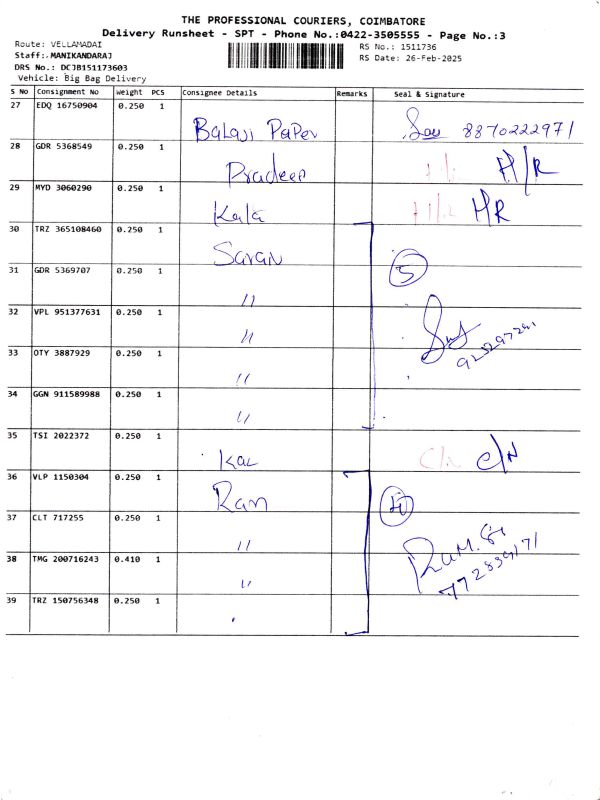 THE PROFESSIONAL COURIERS, COIMBATORE
Delivery Runsheet - SPT - Phone No.:0422-3505555 - Page No.:3
Route: VELLAMADAI
RS No.: 1511736
Staff: MANIKANDARAJ
RS Date: 26-Feb-2025
DRS No.: DCJB151173603
Vehicle: Big Bag Delivery
S No Consignment No Weight PCS Consignee Details Remarks Seal & Signature
27 EDQ 16750904 0.250 1 Balaji Paper 8870222971
28 GDR 5368549 0.250 1 Pradeep H/R
29 MYD 3060290 0.250 1 Kala H/R
30 TRZ 365108460 0.250 1 Saran 5
31 GDR 5369707 0.250 1 "
32 VPL 951377631 0.250 1 "
33 OTY 3887929 0.250 1 "
34 GGN 911589988 0.250 1 "
35 TSI 2022372 0.250 1 C/N
36 VLP 1150304 0.250 1 Ram
37 CLT 717255 0.250 1 "
38 TMG 200716243 0.410 1 "
39 TRZ 150756348 0.250 1